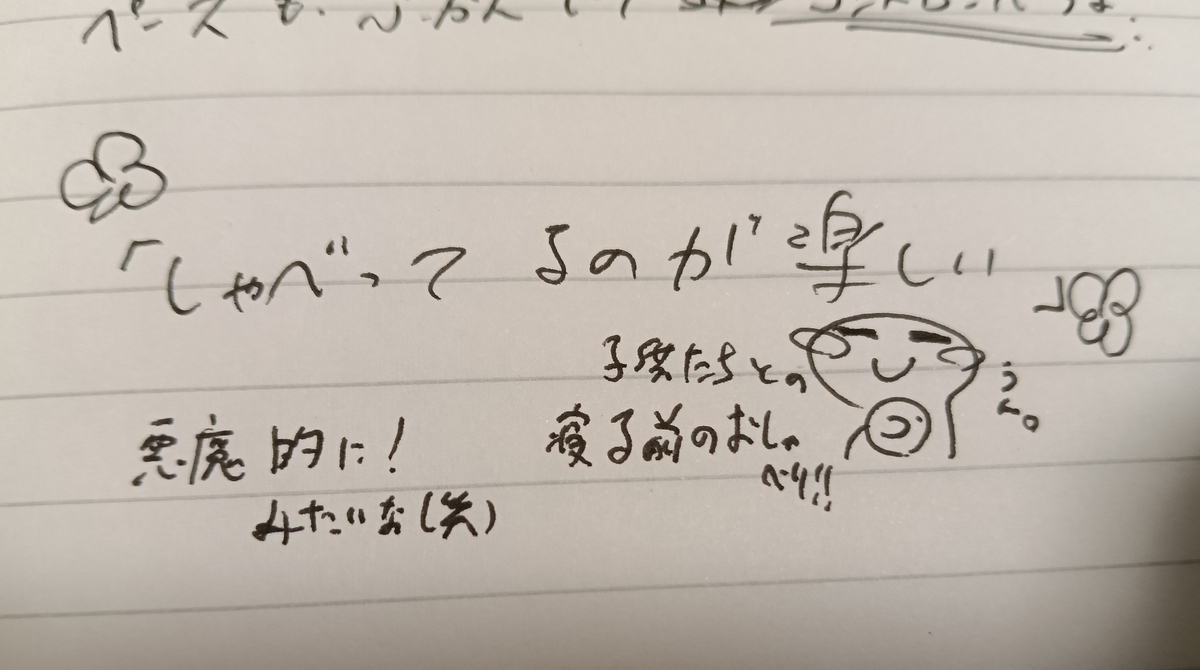 ペースも
「しゃべってるのが楽しい」
子供たちとの
寝る前のおしゃ
べり!!
うん。
悪魔的に!
みたいな(笑)